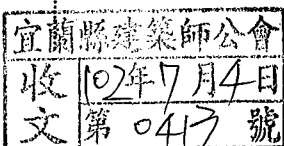 宜蘭縣建築師公會
收文
102年7月4日
第0413號